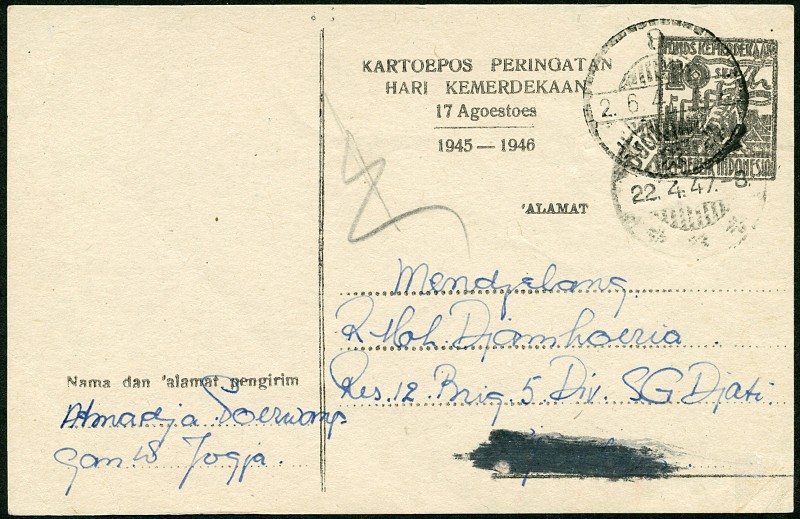 KARTOEPOS PERINGATAN
HARI KEMERDEKAAN
17 Agoestoes
1945 — 1946
FONDS KEMERDEKAAN
10 SEN
INDONESIA
8
2.6.4
22.4.47.-8
'ALAMAT
Mendjelang
R. Moh. Djamhoeria.
Res. 12. Brig. 5. Div. SG Djati.
Nama dan 'alamat pengirim
Atmadja Poerwa
Jogja.